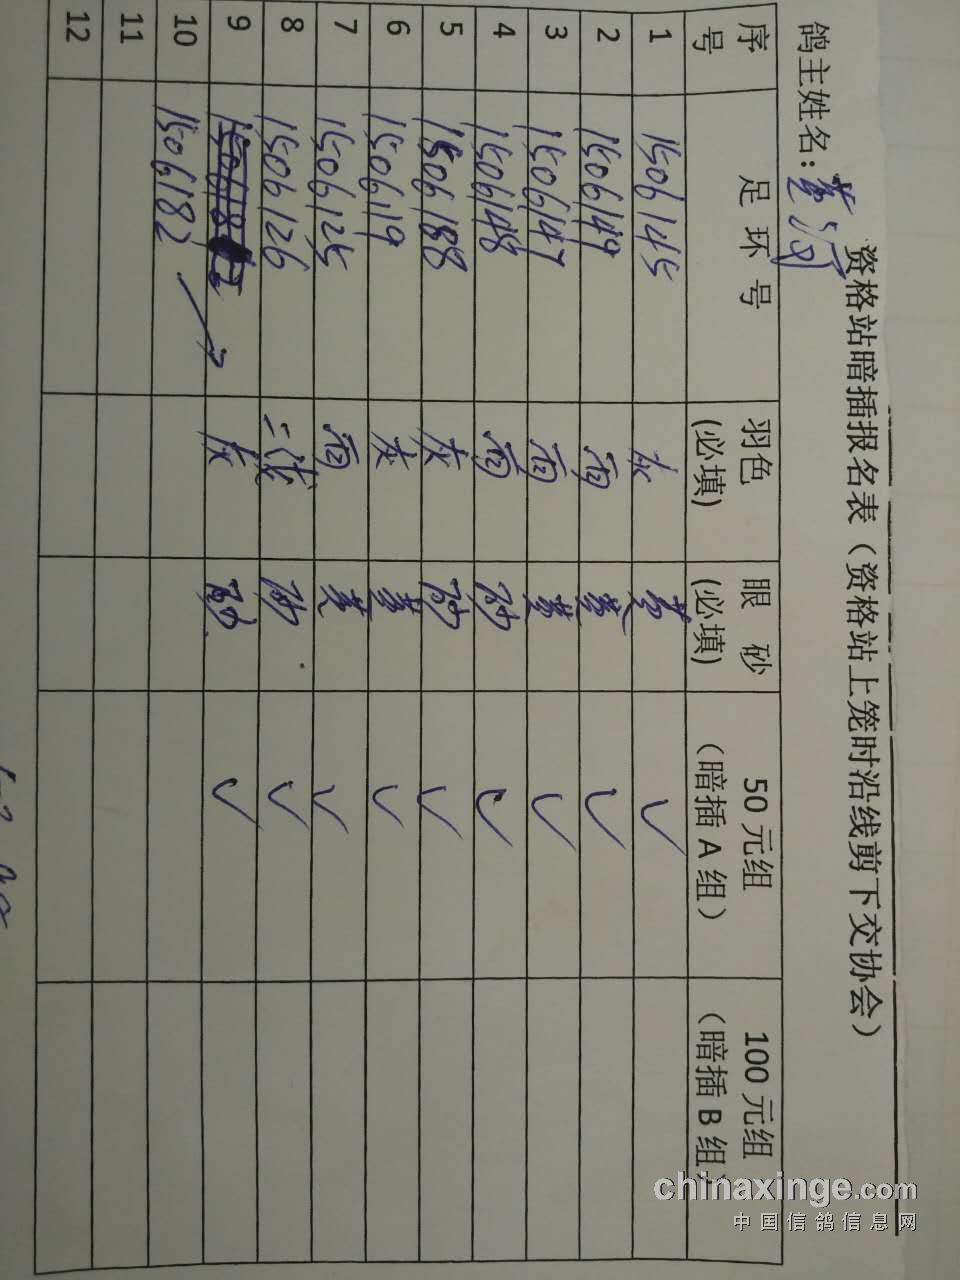 资格站暗插报名表（资格站上笼时沿线剪下交协会）
鸽主姓名：
序号 足环号 羽色(必填) 眼砂(必填) 50元组（暗插A组） 100元组（暗插B组）
1 1506145 灰 黄 ✓
2 1506149 雨 黄 ✓
3 1506147 雨 黄 ✓
4 1506148 雨 砂 ✓
5 1506188 灰 砂 ✓
6 1506119 灰 黄 ✓
7 1506125 雨 黄 ✓
8 1506126 砂 ✓
9 灰 砂 ✓
10 1506182
11
12
chinaxinge.com
中国信鸽信息网